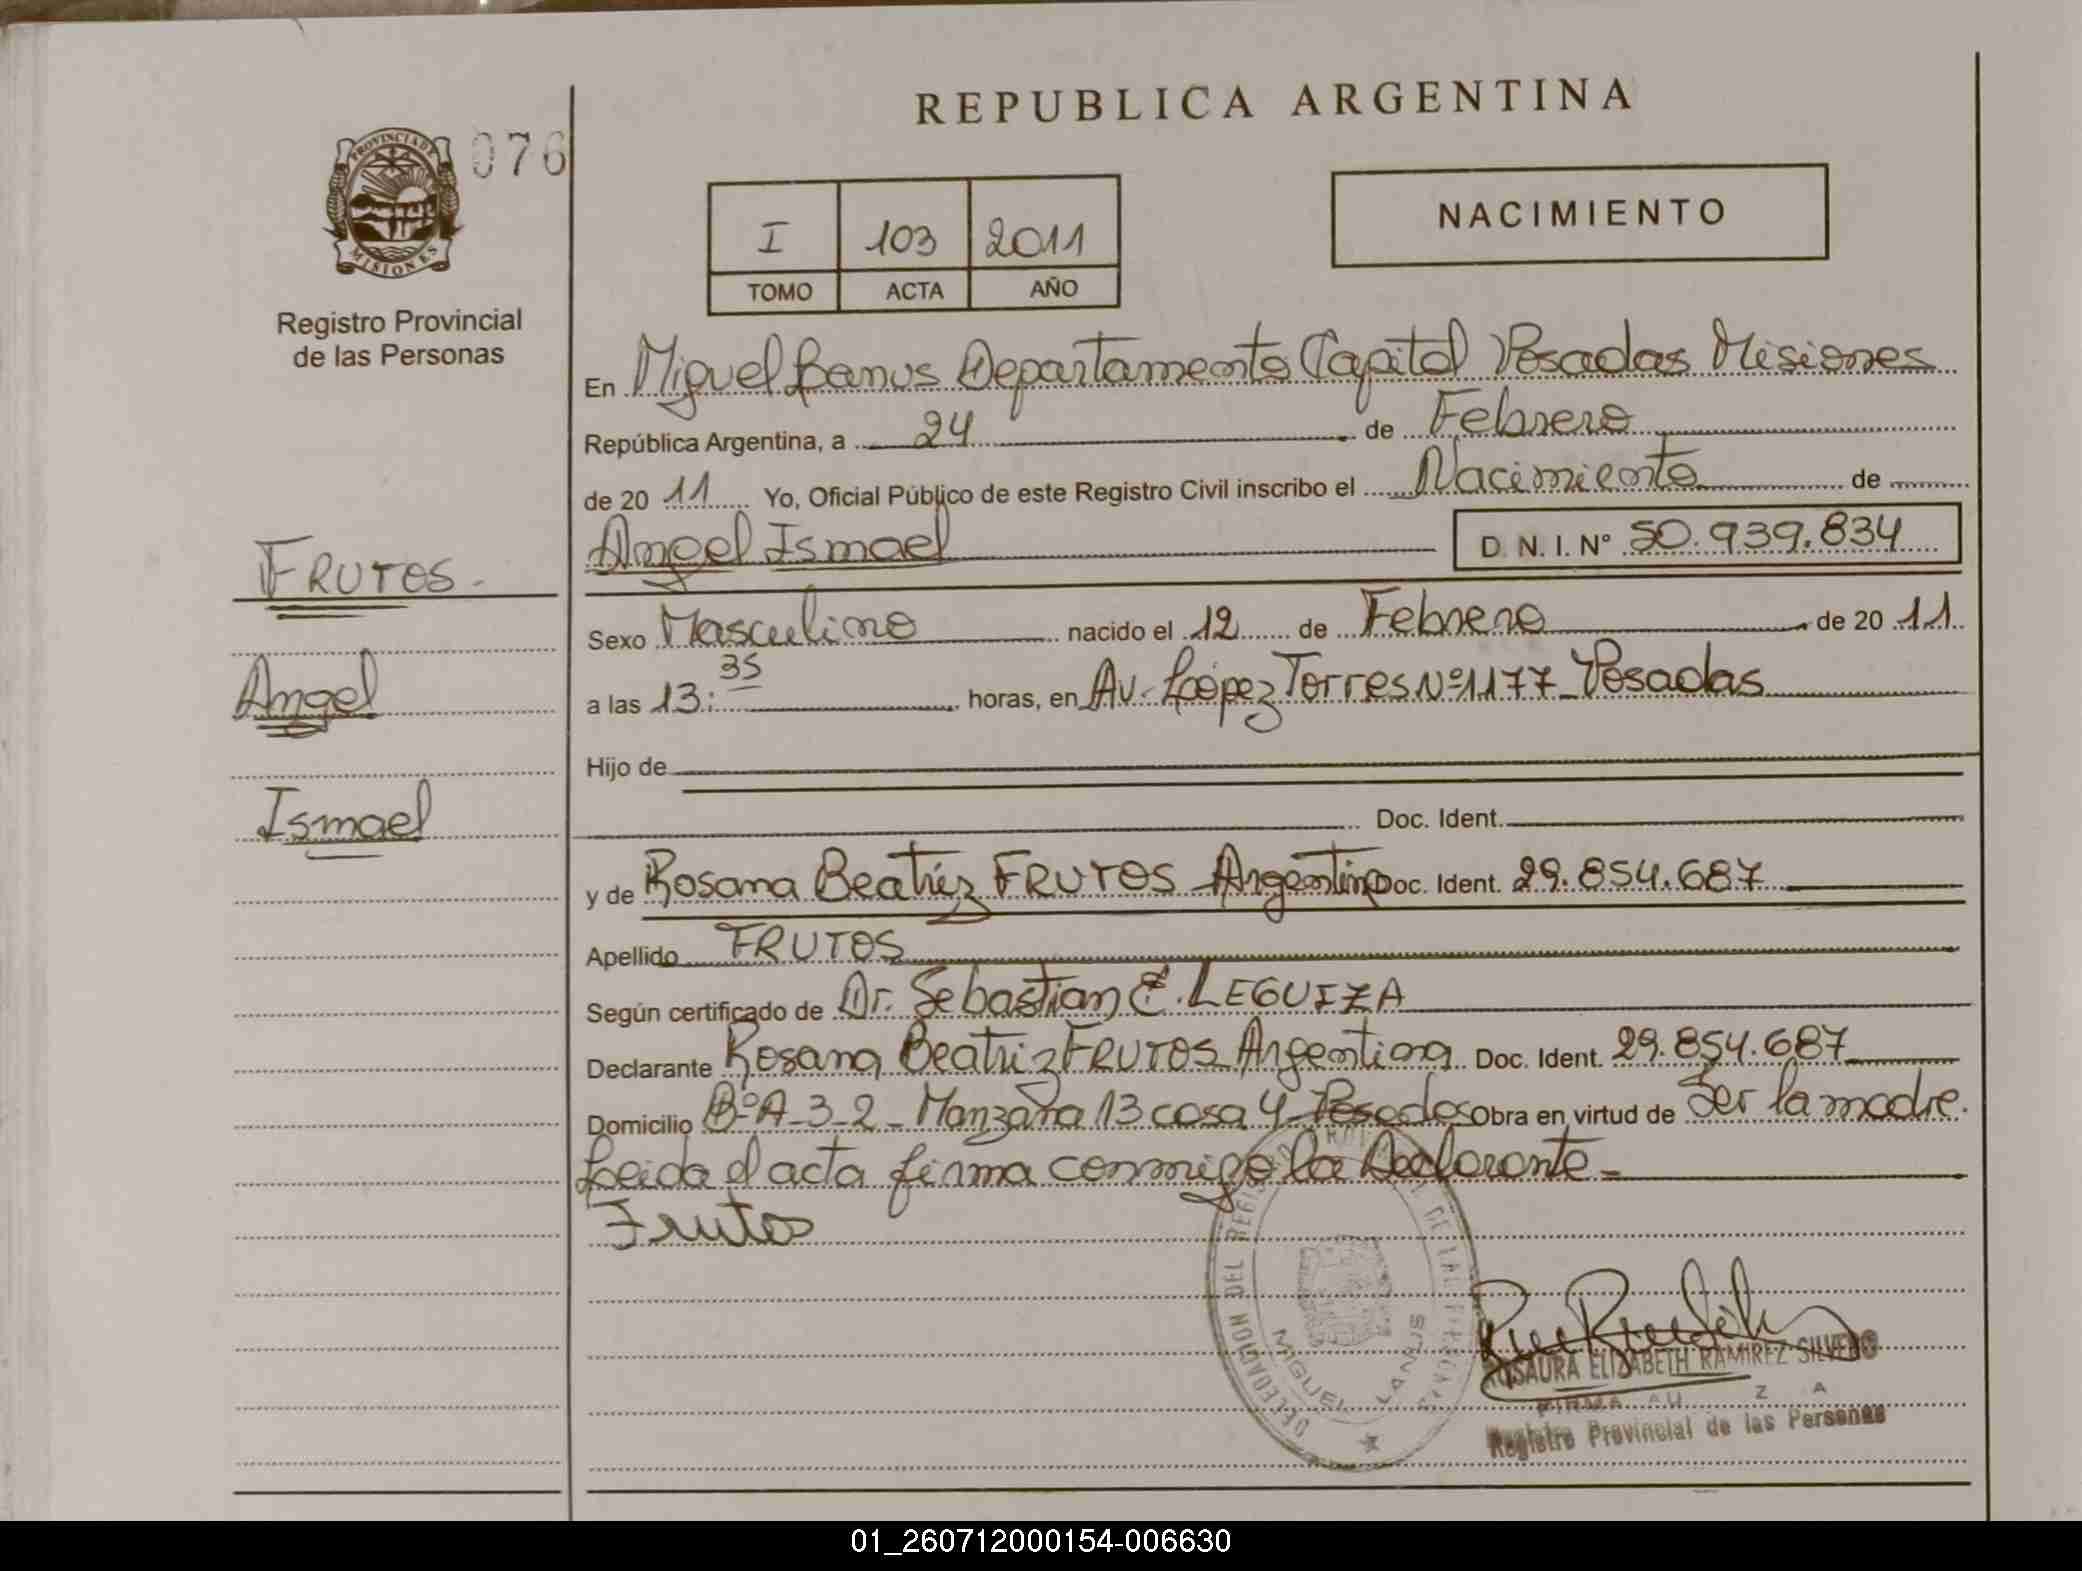 REPUBLICA ARGENTINA
PROVINCIA DE
MISIONES
076
Registro Provincial
de las Personas
NACIMIENTO
I 103 2011
TOMO ACTA AÑO
En Miguel Lanus Departamento Capital Posadas Misiones
República Argentina, a 24 de Febrero
de 2011 Yo, Oficial Público de este Registro Civil inscribo el Nacimiento de
Angel Ismael D.N.I. Nº 50.939.834
FRUTOS.
Angel
Ismael
Sexo Masculino nacido el 12 de Febrero de 2011
a las 13:35 horas, en Av. López Torres Nº 1177 Posadas
Hijo de
Doc. Ident.
y de Rosana Beatríz FRUTOS Argentina Doc. Ident. 29.854.687
Apellido FRUTOS
Según certificado de Dr. Sebastian E. LEGUIZA
Declarante Rosana Beatriz FRUTOS Argentina Doc. Ident. 29.854.687
Domicilio Bº A-3-2- Manzana 13 casa 4 Posadas Obra en virtud de Ser la madre.
Leida el acta firma conmigo la Declarante-
Frutos
DELEGACION DEL REGISTRO DE LAS PERSONAS
MIGUEL LANUS
ROSAURA ELIZABETH RAMIREZ SILVERO
FIRMA AU Z A
Registro Provincial de las Personas
01_260712000154-006630